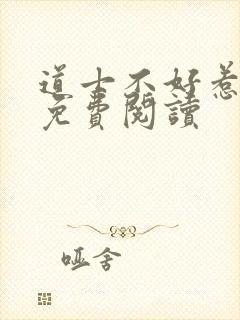 道士不好惹
免費閱讀
哑舍